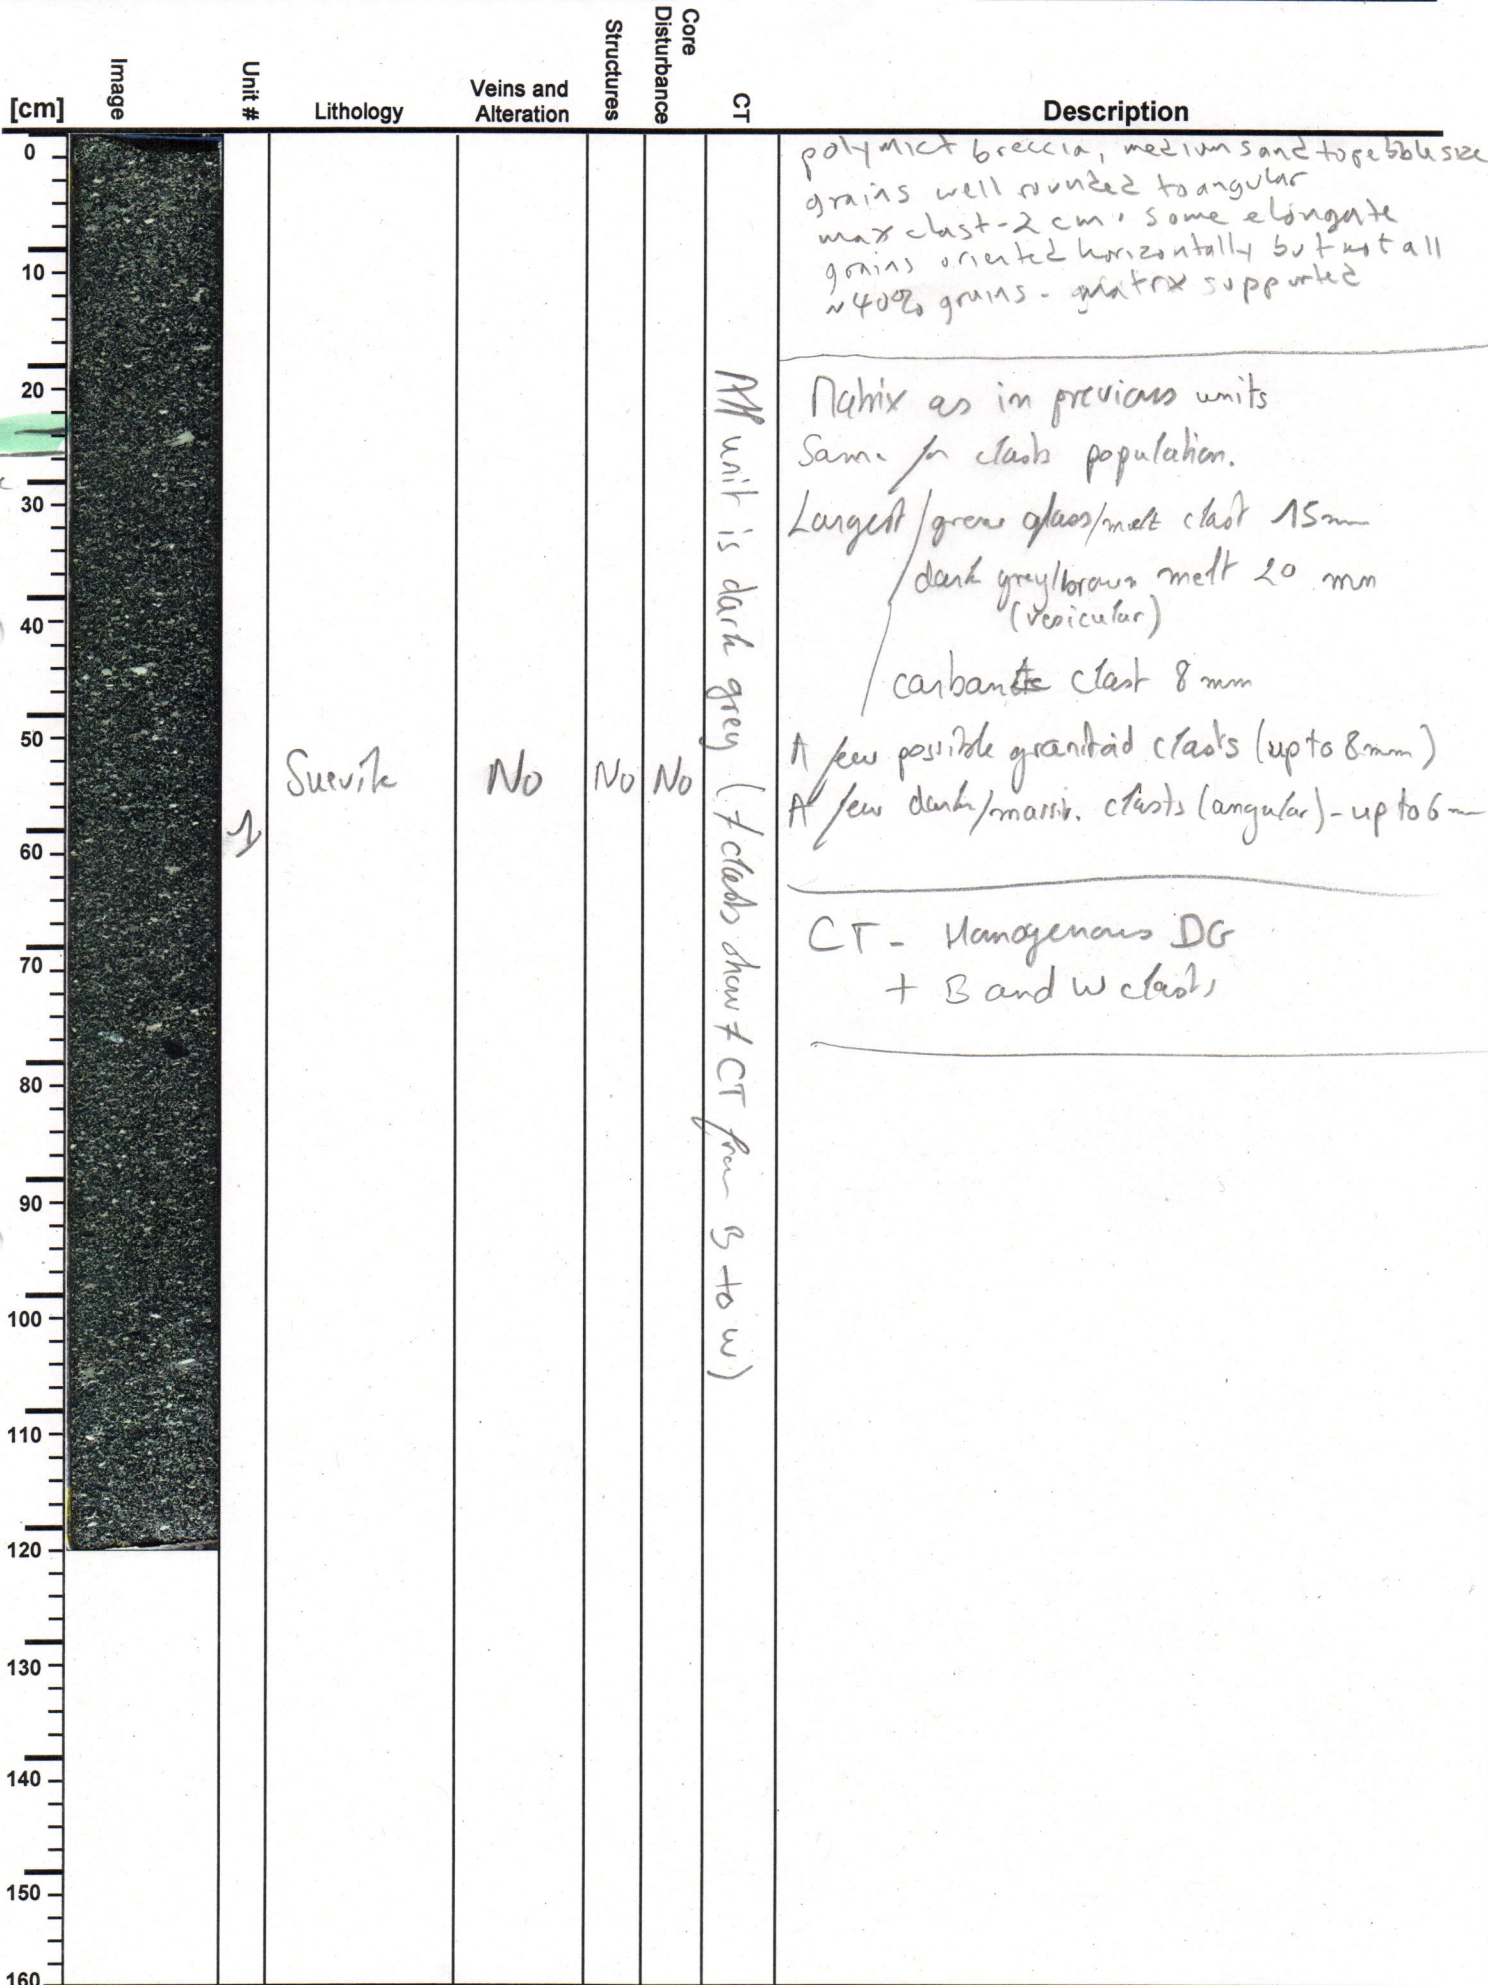 [cm]
Image
Unit #
Lithology
Veins and
Alteration
Structures
Core
Disturbance
CT
Description
0
10
20
30
40
50
60
70
80
90
100
110
120
130
140
150
160
1
Suevite
No
No
No
All unit is dark grey (≠ clasts show ≠ CT from B to W)
polymict breccia, medium sand to pebble size
grains well rounded to angular
max clast - 2 cm, some elongate
grains oriented horizontally but not all
~40% grains - matrix supported
Matrix as in previous units
Same for clasts population.
Largest / green glass/melt clast 15 mm
dark grey/brown melt 20 mm
(vesicular)
carbonate clast 8 mm
A few possible granitoid clasts (up to 8 mm)
A few dark/massive clasts (angular) - up to 6 mm
CT - Homogenous DG
+ B and W clasts